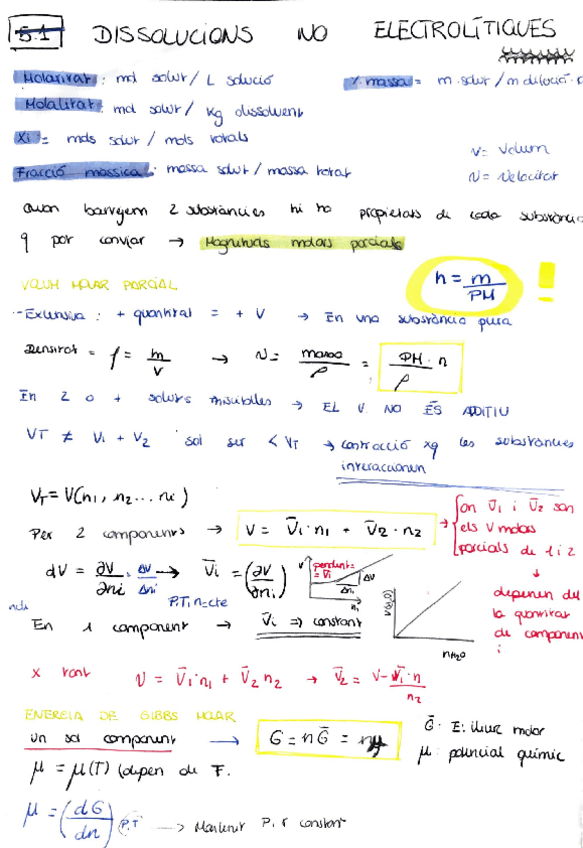 5.1 DISSOLUCIONS NO ELECTROLÍTIQUES
Molaritat: mol solut / L solució
% massa = m. solut / m dilució
Molalitat: mol solut / Kg dissolvent
Xi = mols solut / mols totals
v = Volum
Fracció màssica: massa solut / massa total
v = Velocitat
Quan barregem 2 substàncies hi ha propietats de cada substància
q pot canviar → Magnituds molars parcials
n = m / PM !
VOLUM MOLAR PARCIAL
- Extensiva: + quantitat = + V → En una substància pura
Densitat = ρ = m / V → V = massa / ρ = PM · n / ρ
En 2 o + soluts miscibles → EL V NO ÉS ADITIU
VT ≠ V1 + V2 sol ser < VT → contracció xq les substàncies
interaccionen
VT = V(n1, n2 ... ni)
Per 2 components → V = V̄1·n1 + V̄2·n2 → on V̄1 i V̄2 son
els V molars
parcials de 1 i 2
dV = ∂V/∂ni = ΔV/Δni → V̄i = (∂V/∂ni) P,T,n=cte
pendent = V̄i
ΔV
Δni
depenen de
la quantitat
de component
i
En 1 component → V̄i ⇒ constant
nH2O
x tant V = V̄1·n1 + V̄2 n2 → V̄2 = V - V̄1·n / n2
ENERGIA DE GIBBS MOLAR
un sol component → G = nḠ = nμ
Ḡ: E. lliure molar
μ: potencial químic
μ = μ(T) (depen de T.
μ = (dG/dn) P,T → Mantenir P, T constant